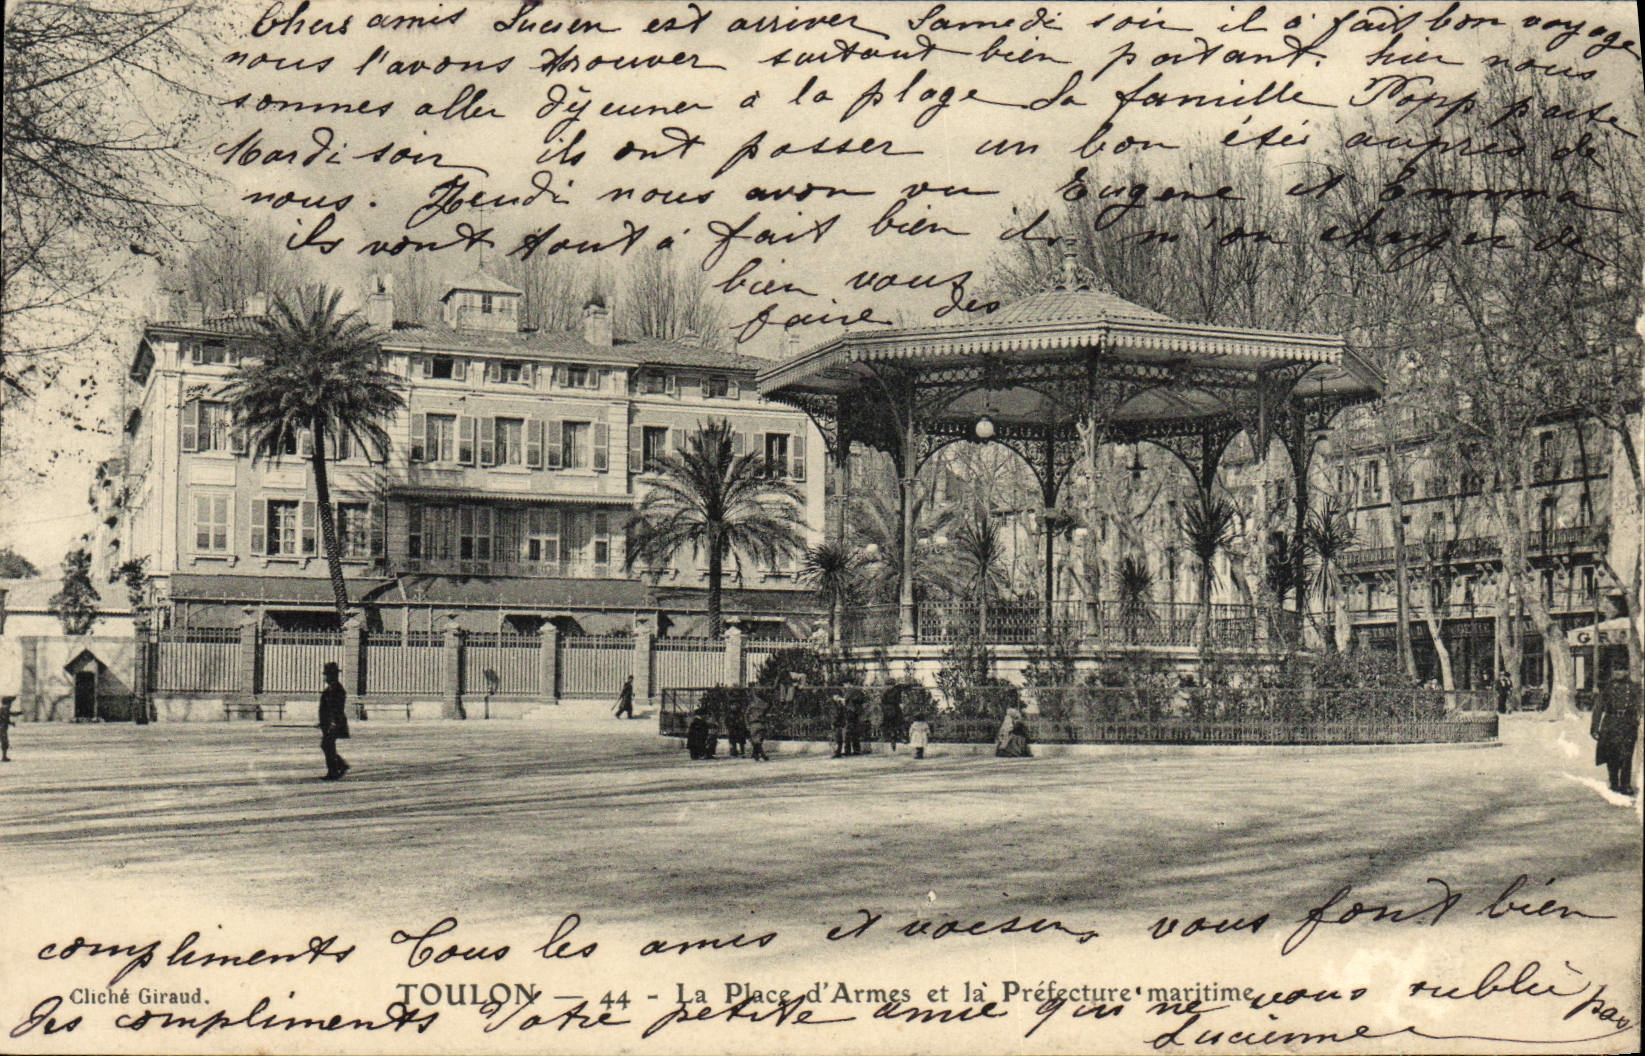 Chers amis Lucien est arriver Samedi soir il à fait bon voyage
nous l'avons trouver surtout bien portant. hier nous
sommes aller déjeuner à la plage La famille Popp parte
Mardi soir ils ont passer un bon étés auprès de
nous. Jeudi nous avon vu Eugene et Emma
ils vont tout à fait bien ils m'on charger de
bien vous
faire des
compliments Tous les amis et voisins vous font bien
Cliché Giraud. TOULON — 44 - La Place d'Armes et la Préfecture maritime
des compliments Votre petite amie qui ne vous oublie pas
Lucienne